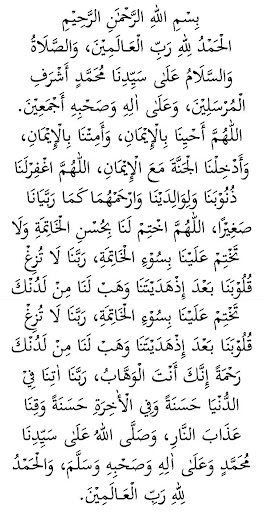 بِسْمِ اللهِ الرَّحْمَنِ الرَّحِيْمِ
الْحَمْدُ لِلهِ رَبِّ الْعَالَمِيْنَ، وَالصَّلَاةُ
وَالسَّلَامُ عَلَى سَيِّدِنَا مُحَمَّدٍ أَشْرَفِ
الْمُرْسَلِيْنَ، وَعَلَى اٰلِهِ وَصَحْبِهِ أَجْمَعِيْنَ.
اللّٰهُمَّ أَحْيِنَا بِالْإِيْمَانِ، وَأَمِتْنَا بِالْإِيْمَانِ،
وَأَدْخِلْنَا الْجَنَّةَ مَعَ الْإِيْمَانِ، اللّٰهُمَّ اغْفِرْلَنَا
ذُنُوْبَنَا وَلِوَالِدَيْنَا وَارْحَمْهُمَا كَمَا رَبَّيَانَا
صَغِيْرًا، اللّٰهُمَّ اخْتِمْ لَنَا بِحُسْنِ الْخَاتِمَةِ وَلَا
تَخْتِمْ عَلَيْنَا بِسُوْءِ الْخَاتِمَةِ، رَبَّنَا لَا تُزِغْ
قُلُوْبَنَا بَعْدَ إِذْهَدَيْتَنَا وَهَبْ لَنَا مِنْ لَدُنْكَ
تَخْتِمْ عَلَيْنَا بِسُوْءِ الْخَاتِمَةِ، رَبَّنَا لَا تُزِغْ
قُلُوْبَنَا بَعْدَ إِذْهَدَيْتَنَا وَهَبْ لَنَا مِنْ لَدُنْكَ
رَحْمَةً إِنَّكَ أَنْتَ الْوَهَّابُ، رَبَّنَا اٰتِنَا فِيْ
الدُّنْيَا حَسَنَةً وَفِي الْأٰخِرَةِ حَسَنَةً وَقِنَا
عَذَابَ النَّارِ، وَصَلَّى اللهُ عَلَى سَيِّدِنَا
مُحَمَّدٍ وَعَلَى اٰلِهِ وَصَحْبِهِ وَسَلَّمَ، وَالْحَمْدُ
لِلهِ رَبِّ الْعَالَمِيْنَ.